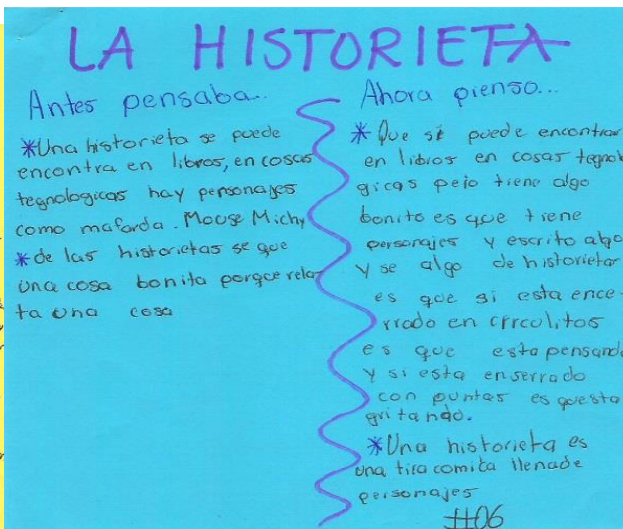 LA HISTORIETA
Antes pensaba...
*Una historieta se puede
encontra en libros, en cosas
tegnologicas hay personajes
como mafarda. Mouse Michy
*de las historietas se que
una cosa bonita porque rela-
ta una cosa
Ahora pienso...
*Que si puede encontrar
en libros en cosas tegnolo
gicas pero tiene algo
bonito es que tiene
personajes y escrito algo
y se algo de historietar
es que si esta ence-
rrado en circulitos
es que esta pensando
y si esta enserrado
con puntas es questa
gritando.
*Una historieta es
una tira comica llenade
personajes
#06